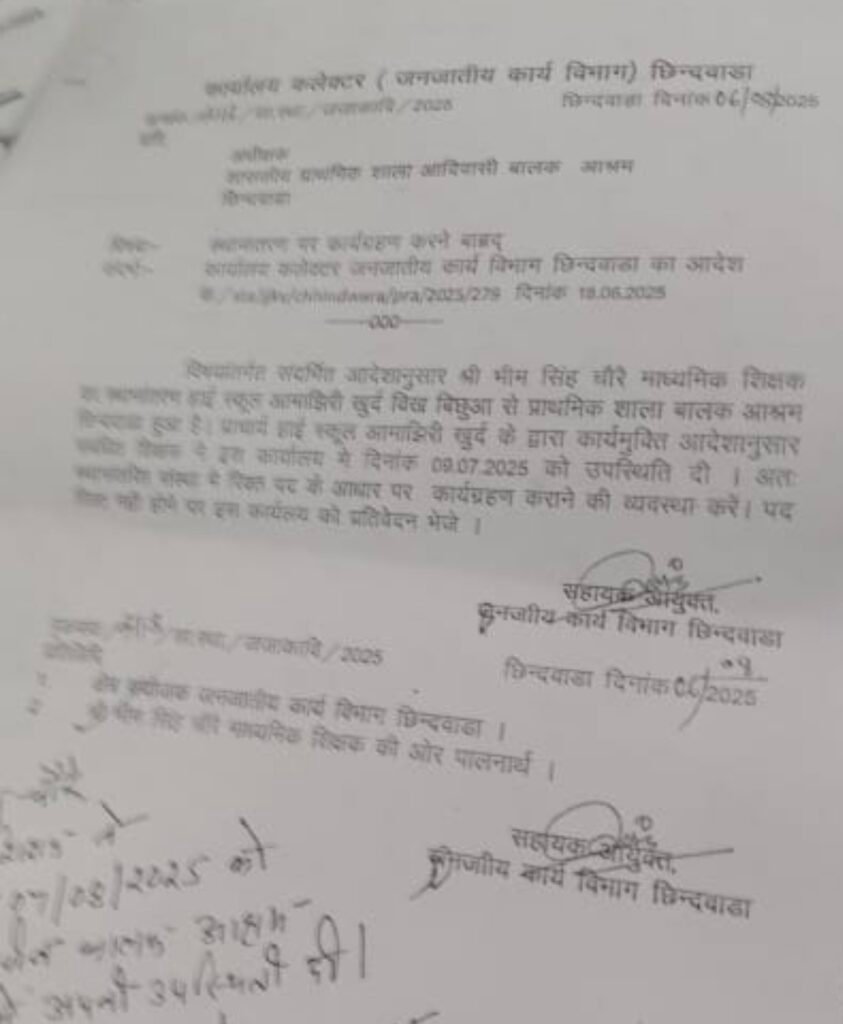 कार्यालय कलेक्टर ( जनजातीय कार्य विभाग) छिन्दवाडा
/ 2025 छिन्दवाडा दिनांक 06/08/2025
अधीक्षक
शासकीय प्राथमिक शाला आदिवासी बालक आश्रम
छिन्दवाडा
विषयः- स्थानांतरण पर कार्यग्रहण करने बाबद्
संदर्भः- कार्यालय कलेक्टर जनजातीय कार्य विभाग छिन्दवाडा का आदेश
/2025/279 दिनांक 18.06.2025
-----000-----
विषयांतर्गत संदर्भित आदेशानुसार श्री भीम सिंह चौरे माध्यमिक शिक्षक
का स्थानांतरण हाई स्कूल आमाझिरी खुर्द विख बिछुआ से प्राथमिक शाला बालक आश्रम
छिन्दवाडा हुआ है। प्राचार्य हाई स्कूल आमाझिरी खुर्द के द्वारा कार्यमुक्ति आदेशानुसार
संबंधित शिक्षक ने इस कार्यालय मे दिनांक 09.07.2025 को उपस्थिति दी । अतः
स्थानांतरित संस्था मे रिक्त पद के आधार पर कार्यग्रहण कराने की व्यवस्था करें। पद
रिक्त नही होने पर इस कार्यलय को प्रतिवेदन भेजे ।
सहायक आयुक्त,
जनजाीय कार्य विभाग छिन्दवाडा
/ 2025 छिन्दवाडा दिनांक 06/08/2025
प्रतिलिपि
क्षेत्र संयोजक जनजातीय कार्य विभाग छिन्दवाडा ।
श्री भीम सिंह चौरे माध्यमिक शिक्षक की ओर पालनार्थ ।
सहायक आयुक्त,
जनजाीय कार्य विभाग छिन्दवाडा
चौरे
ने
07/08/2025 को
बालक आश्रम
अपनी उपस्थिती दी।